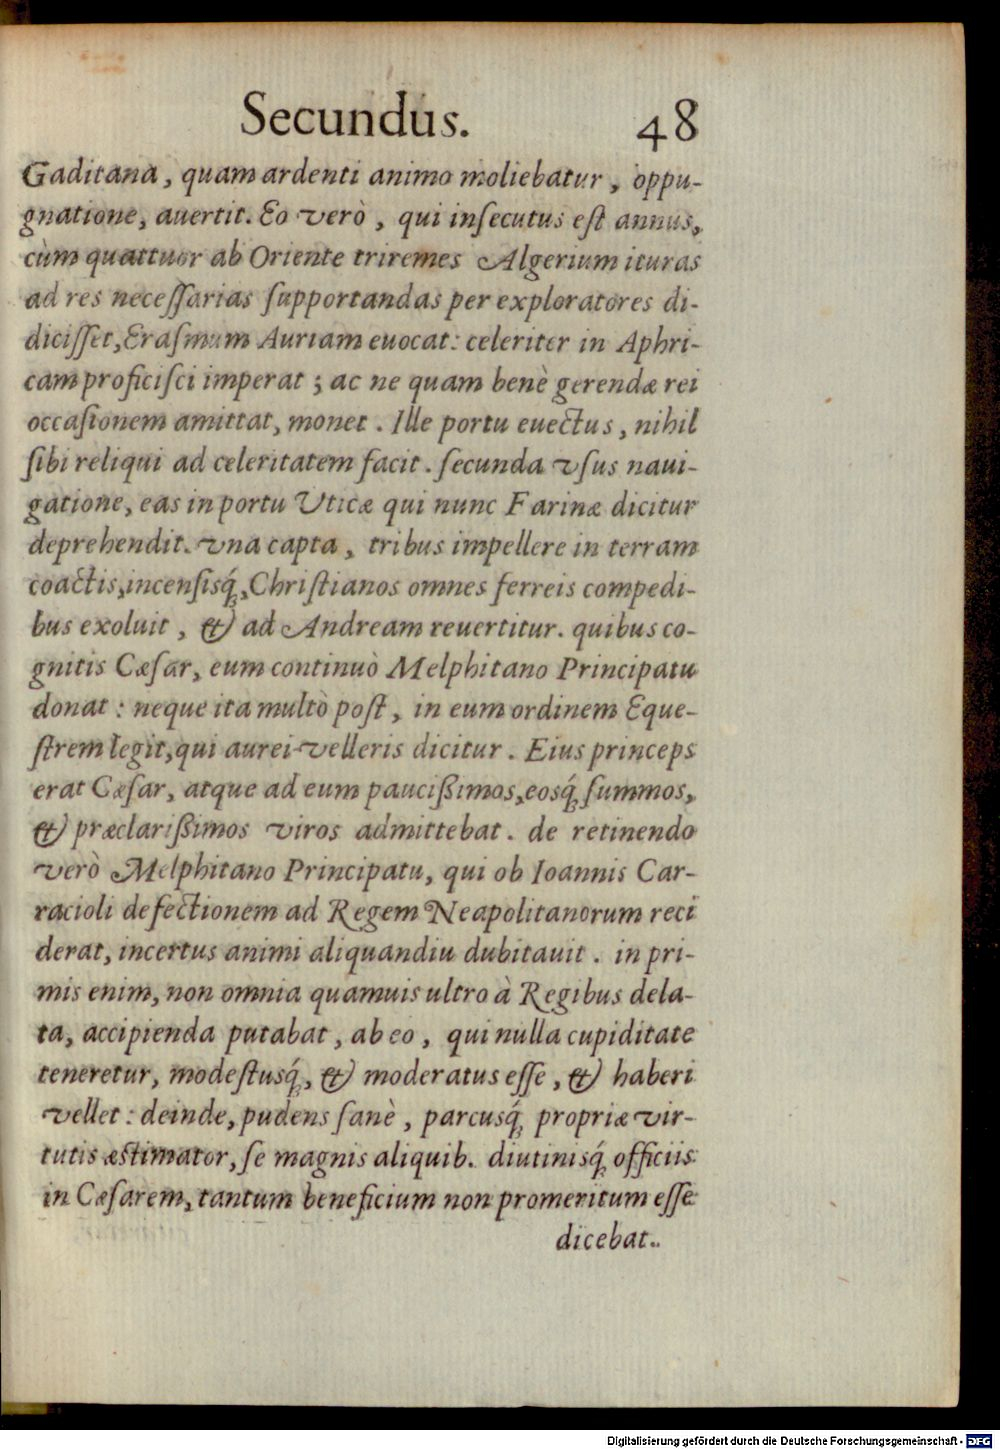 Secundus. 48
Gaditana, quam ardenti animo moliebatur, oppu-
gnatione, auertit. Eo verò, qui inſecutus eſt annus,
cùm quattuor ab Oriente triremes Algerium ituras
ad res neceſſarias ſupportandas per exploratores di-
diciſſet, Eraſmum Auriam euocat: celeriter in Aphri-
cam proficiſci imperat; ac ne quam benè gerendæ rei
occaſionem amittat, monet. Ille portu euectus, nihil
ſibi reliqui ad celeritatem facit. ſecunda vſus naui-
gatione, eas in portu Vticæ qui nunc Farinæ dicitur
deprehendit. vna capta, tribus impellere in terram
coactis, incenſisq́;, Chriſtianos omnes ferreis compedi-
bus exoluit, & ad Andream reuertitur. quibus co-
gnitis Cæſar, eum continuò Melphitano Principatu
donat: neque ita multò poſt, in eum ordinem Eque-
ſtrem legit, qui aurei velleris dicitur. Eius princeps
erat Cæſar, atque ad eum pauciſſimos, eosq́; ſummos,
& præclariſſimos viros admittebat. de retinendo
verò Melphitano Principatu, qui ob Ioannis Car-
racioli defectionem ad Regem Neapolitanorum reci
derat, incertus animi aliquandiu dubitauit. in pri-
mis enim, non omnia quamuis ultro à Regibus dela-
ta, accipienda putabat, ab eo, qui nulla cupiditate
teneretur, modeſtusq́;, & moderatus eſſe, & haberi
vellet: deinde, pudens ſanè, parcusq́; propriæ vir-
tutis æſtimator, ſe magnis aliquib. diutinisq́; officiis
in Cæſarem, tantum beneficium non promeritum eſſe
dicebat.
Digitalisierung gefördert durch die Deutsche Forschungsgemeinschaft - DFG